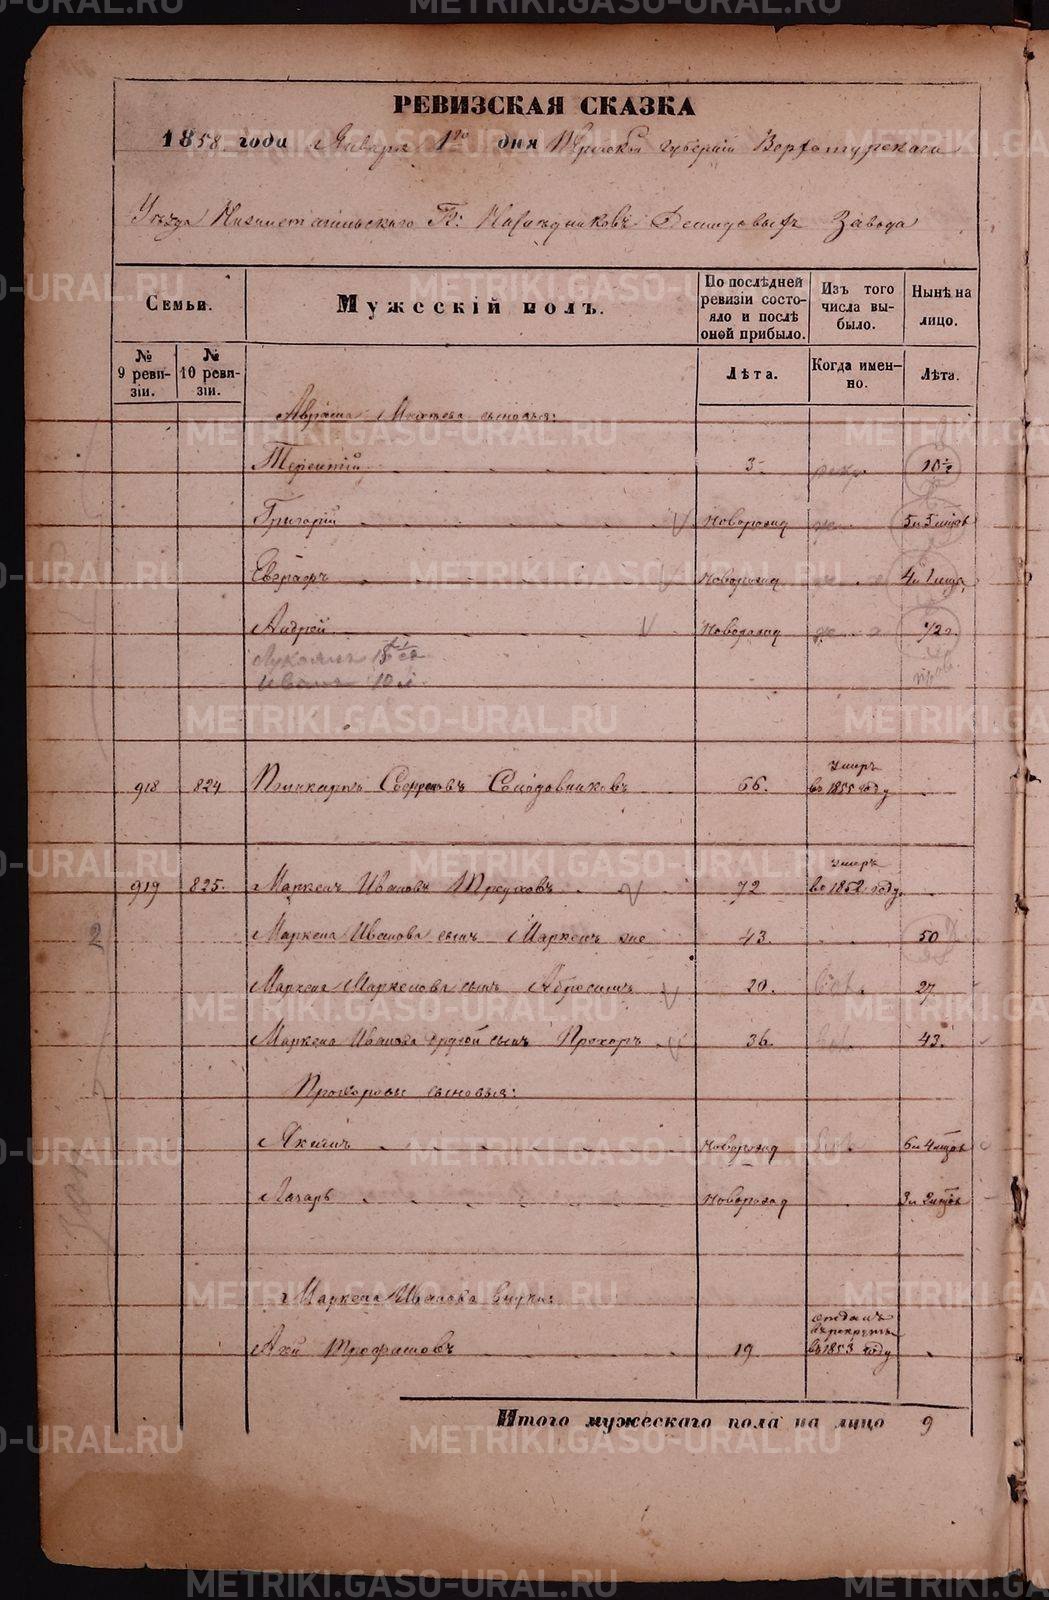 РЕВИЗСКАЯ СКАЗКА
1858 года Января 1го дня Пермской губернии Верхотурскаго
Уезда Нижнетагильскаго Гг: Наследниковъ Демидовыхъ Завода
Семьи.
Мужескій полъ.
По послѣдней ревизіи состояло и послѣ оной прибыло.
Изъ того числа выбыло.
Нынѣ на лицо.
№ 9 ревизіи.
№ 10 ревизіи.
Лѣта.
Когда именно.
Лѣта.
сыновья:
Терентій 3 10½
Григорій новорожд 5 и 5 мцов
новорожд 4 и 1 мца
Андрей новорожд 1/2 г.
Иванъ 10
918 824 66. умеръ в 1855 году
919 825. Маркелъ Ивановъ 72 умеръ в 1852 году.
Маркела Иванова сынъ Маркелъ же 43. 50
Маркела Маркелова сынъ Абросимъ 20. 27
Маркела Иванова другой сынъ Прохоръ 36. 43.
Прохоровы сыновья:
Якимъ новорожд 6 и 4 мцов
Лазарь новорожд 3 и 2 мцов
Маркела Иванова внуки:
Трофимовъ 19 отданъ в рекруты в 1853 году
Итого мужескаго пола на лицо 9
METRIKI.GASO-URAL.RU